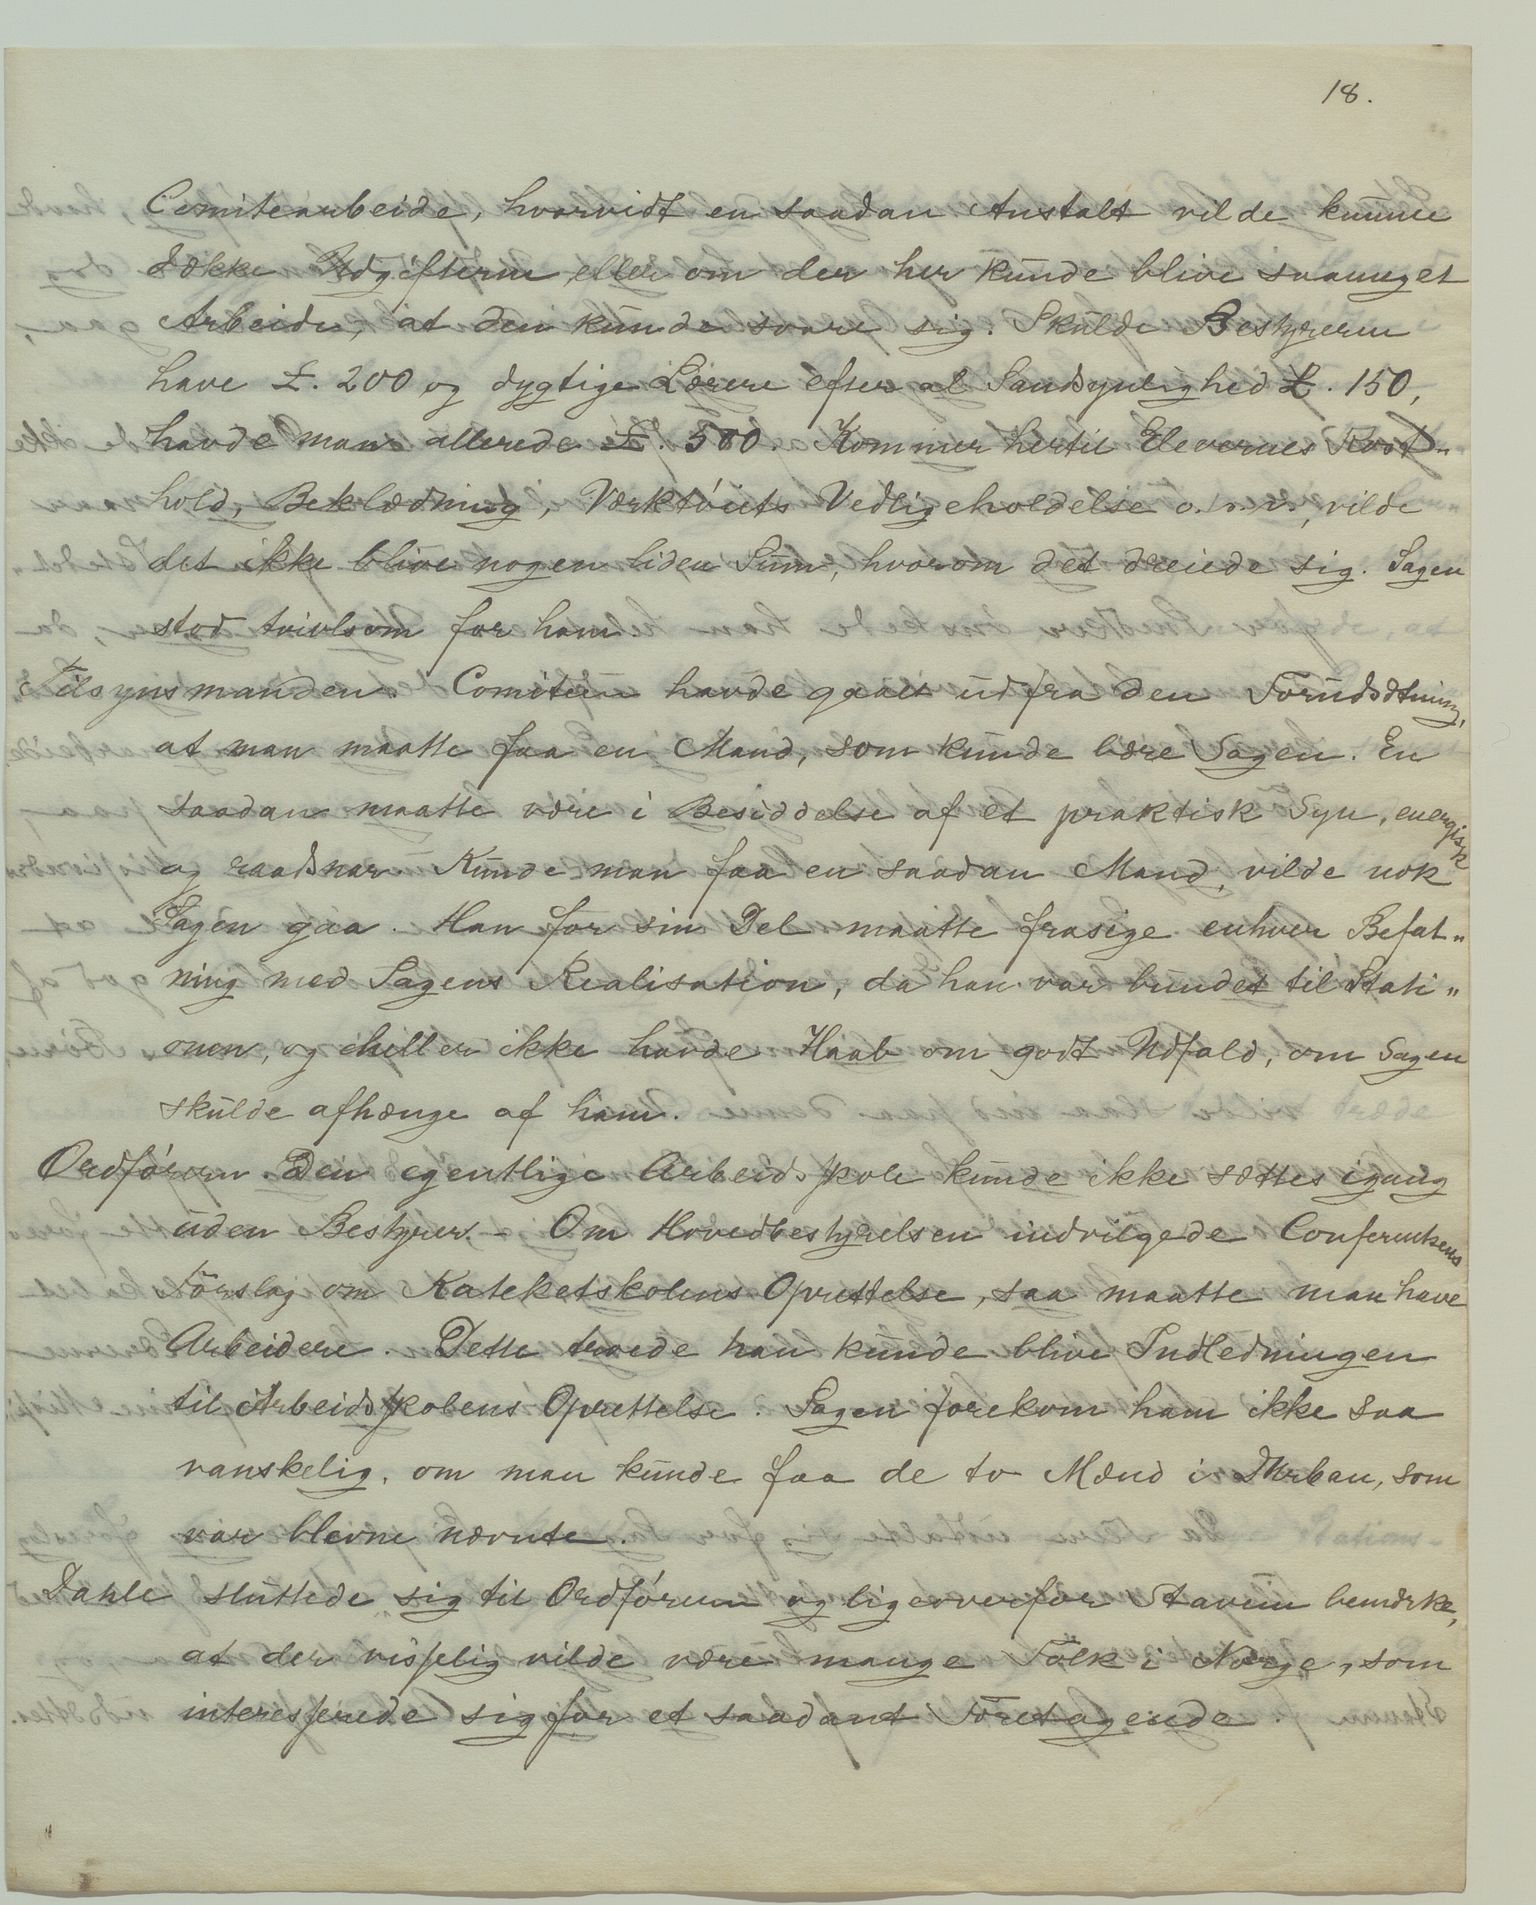 18.
Comitearbeide, hvorvidt en saadan Anstalt vilde kunne
dække Udgifterne eller om der her kunde blive saameget
Arbeide, at den kunde svare sig. Skulde Bestyreren
have £. 200 og dygtige Lærere efter al Sandsynlighed £. 150,
havde man allerede £. 500. Kommer hertil Elevernes Kost„
hold, Beklædning, Værktöiets Vedligeholdelse o. s. v., vilde
det ikke blive nogen liden Sum, hvorom det dreiede sig. Sagen
stod tvivlsom for ham
Tilsynsmanden. Comiteen havde gaaet ud fra den Forudsætning,
at man maatte faa en Mand, som kunde bære Sagen. En
saadan maatte være i Besiddelse af et praktisk Syn, energisk
og raadsnar. Kunde man faa en saadan Mand, vilde nok
Sagen gaa. Han for sin Del maatte frasige enhver Befat„
ning med Sagens Realisation, da han var bundet til Stati„
onen, og heller ikke havde Haab om godt Udfald, om Sagen
skulde afhænge af ham.
Ordföreren. Den egentlige Arbeidsskole kunde ikke sættes igang
uden Bestyrer. - Om Hovedbestyrelsen indvilgede Conferentsens
Förslag om Kateketskolens Oprettelse, saa maatte man have
Arbeidere. Dette troede han kunde blive Indledningen
til Arbeidsskolens Oprettelse. Sagen forekom ham ikke saa
vanskelig, om man kunde faa de to Mænd i Durban, som
var blevne nævnte.
Dahle sluttede sig til Ordföreren og ligeoverfor Stavem bemærke,
at der visselig vilde være mange Folk i Norge, som
interesserede sig for et saadant Foretagende.